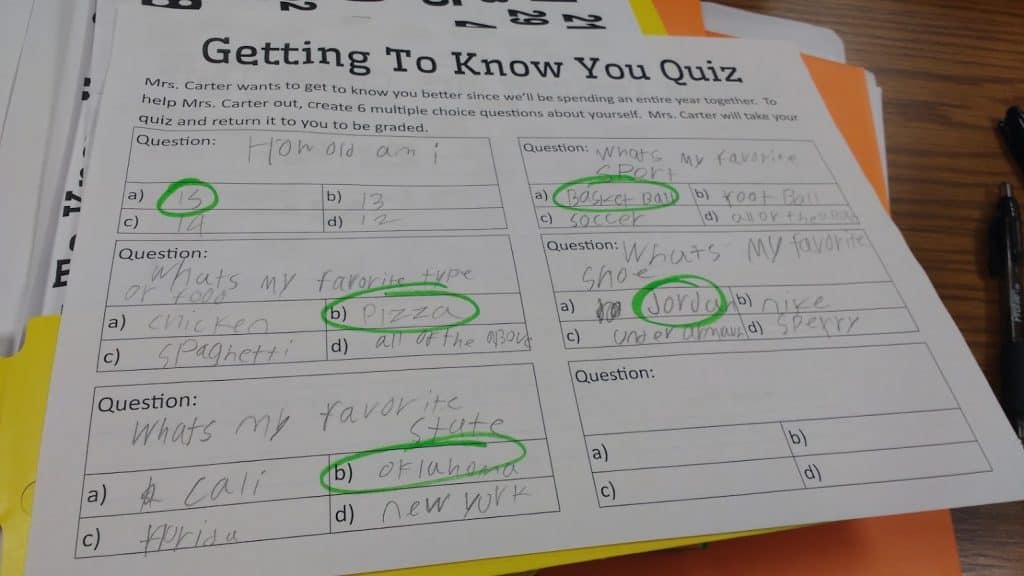 Getting To Know You Quiz
Mrs. Carter wants to get to know you better since we'll be spending an entire year together. To
help Mrs. Carter out, create 6 multiple choice questions about yourself. Mrs. Carter will take your
quiz and return it to you to be graded.
Question: How old am i
a) 15
b) 13
c) 14
d) 12
Question: Whats my favorite
sport
a) Basket Ball
b) Foot Ball
c) soccer
d) all of the
Question:
whats my favorite type
of food
a) chicken
b) Pizza
c) spaghetti
d) all of the above
Question: Whats my favorite
shoe
a) Jorda
b) nike
c) under
d) sperry
Question:
Whats my favorite
state
a) cali
b) oklahoma
c) florida
d) new york
Question:
a)
b)
c)
d)